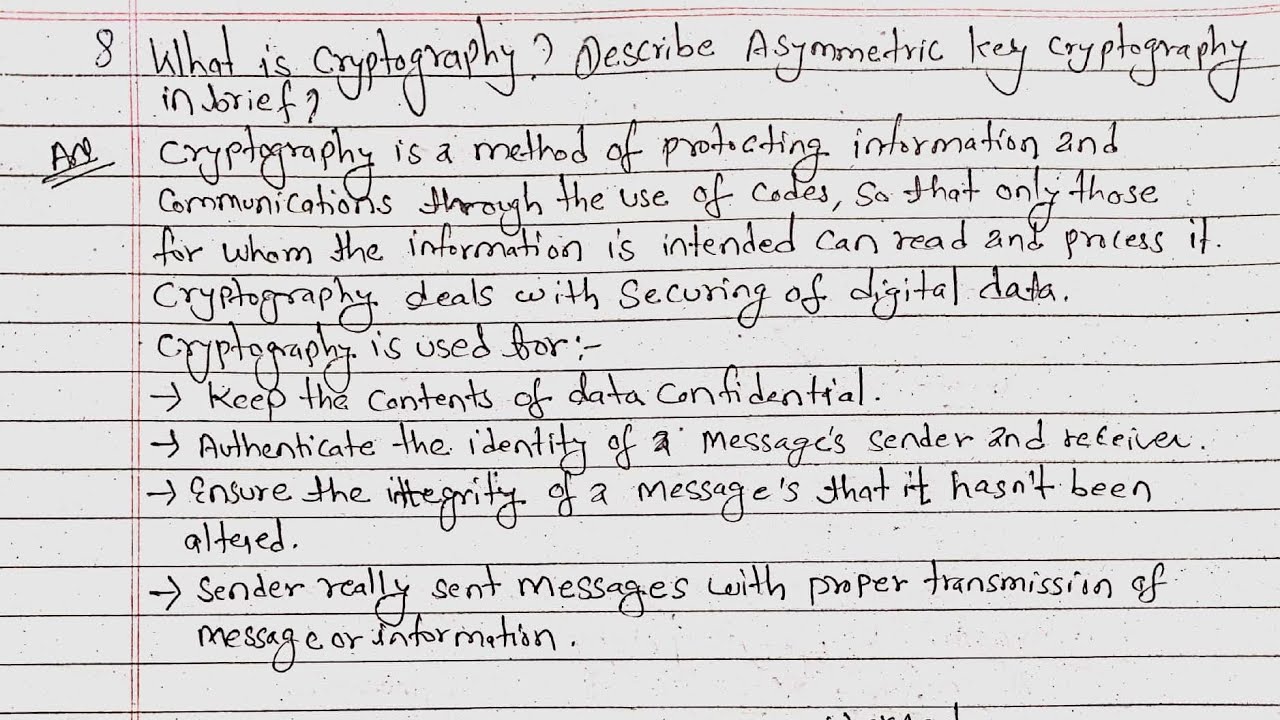 8 What is Cryptography? Describe Asymmetric key cryptography
in brief?
Ans Cryptography is a method of protecting information and
Communications through the use of codes, so that only those
for whom the information is intended can read and process it.
Cryptography deals with securing of digital data.
Cryptography is used for:-
→ Keep the contents of data confidential.
→ Authenticate the identity of a message's sender and receiver.
→ Ensure the integrity of a message's that it hasn't been
altered.
→ Sender really sent messages with proper transmission of
message or information.